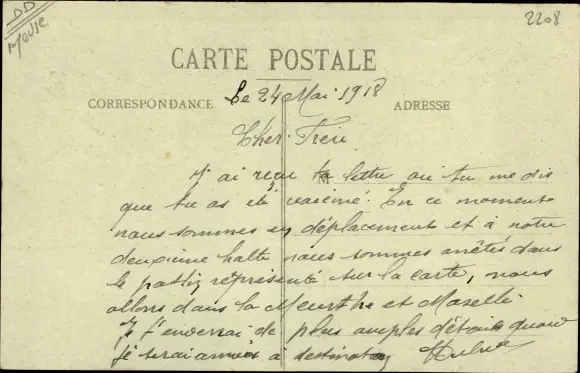 DD
Meuse
2208
CARTE POSTALE
CORRESPONDANCE
ADRESSE
Le 24 Mai 1918
Cher Frère
J'ai reçu ta lettre où tu me dis
que tu as été vacciné. En ce moment
nous sommes en déplacement et à notre
deuxième halte nous sommes arrêtés dans
le représenté sur la carte, nous
allons dans la Meurthe et Moselle.
Je t'enverrai de plus amples détails quand
je serai arrivé à destination